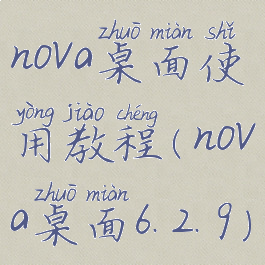 zhuō miàn shǐ
nova桌面使
yòng jiào chéng
用教程(nov
zhuō miàn
a桌面6.2.9)